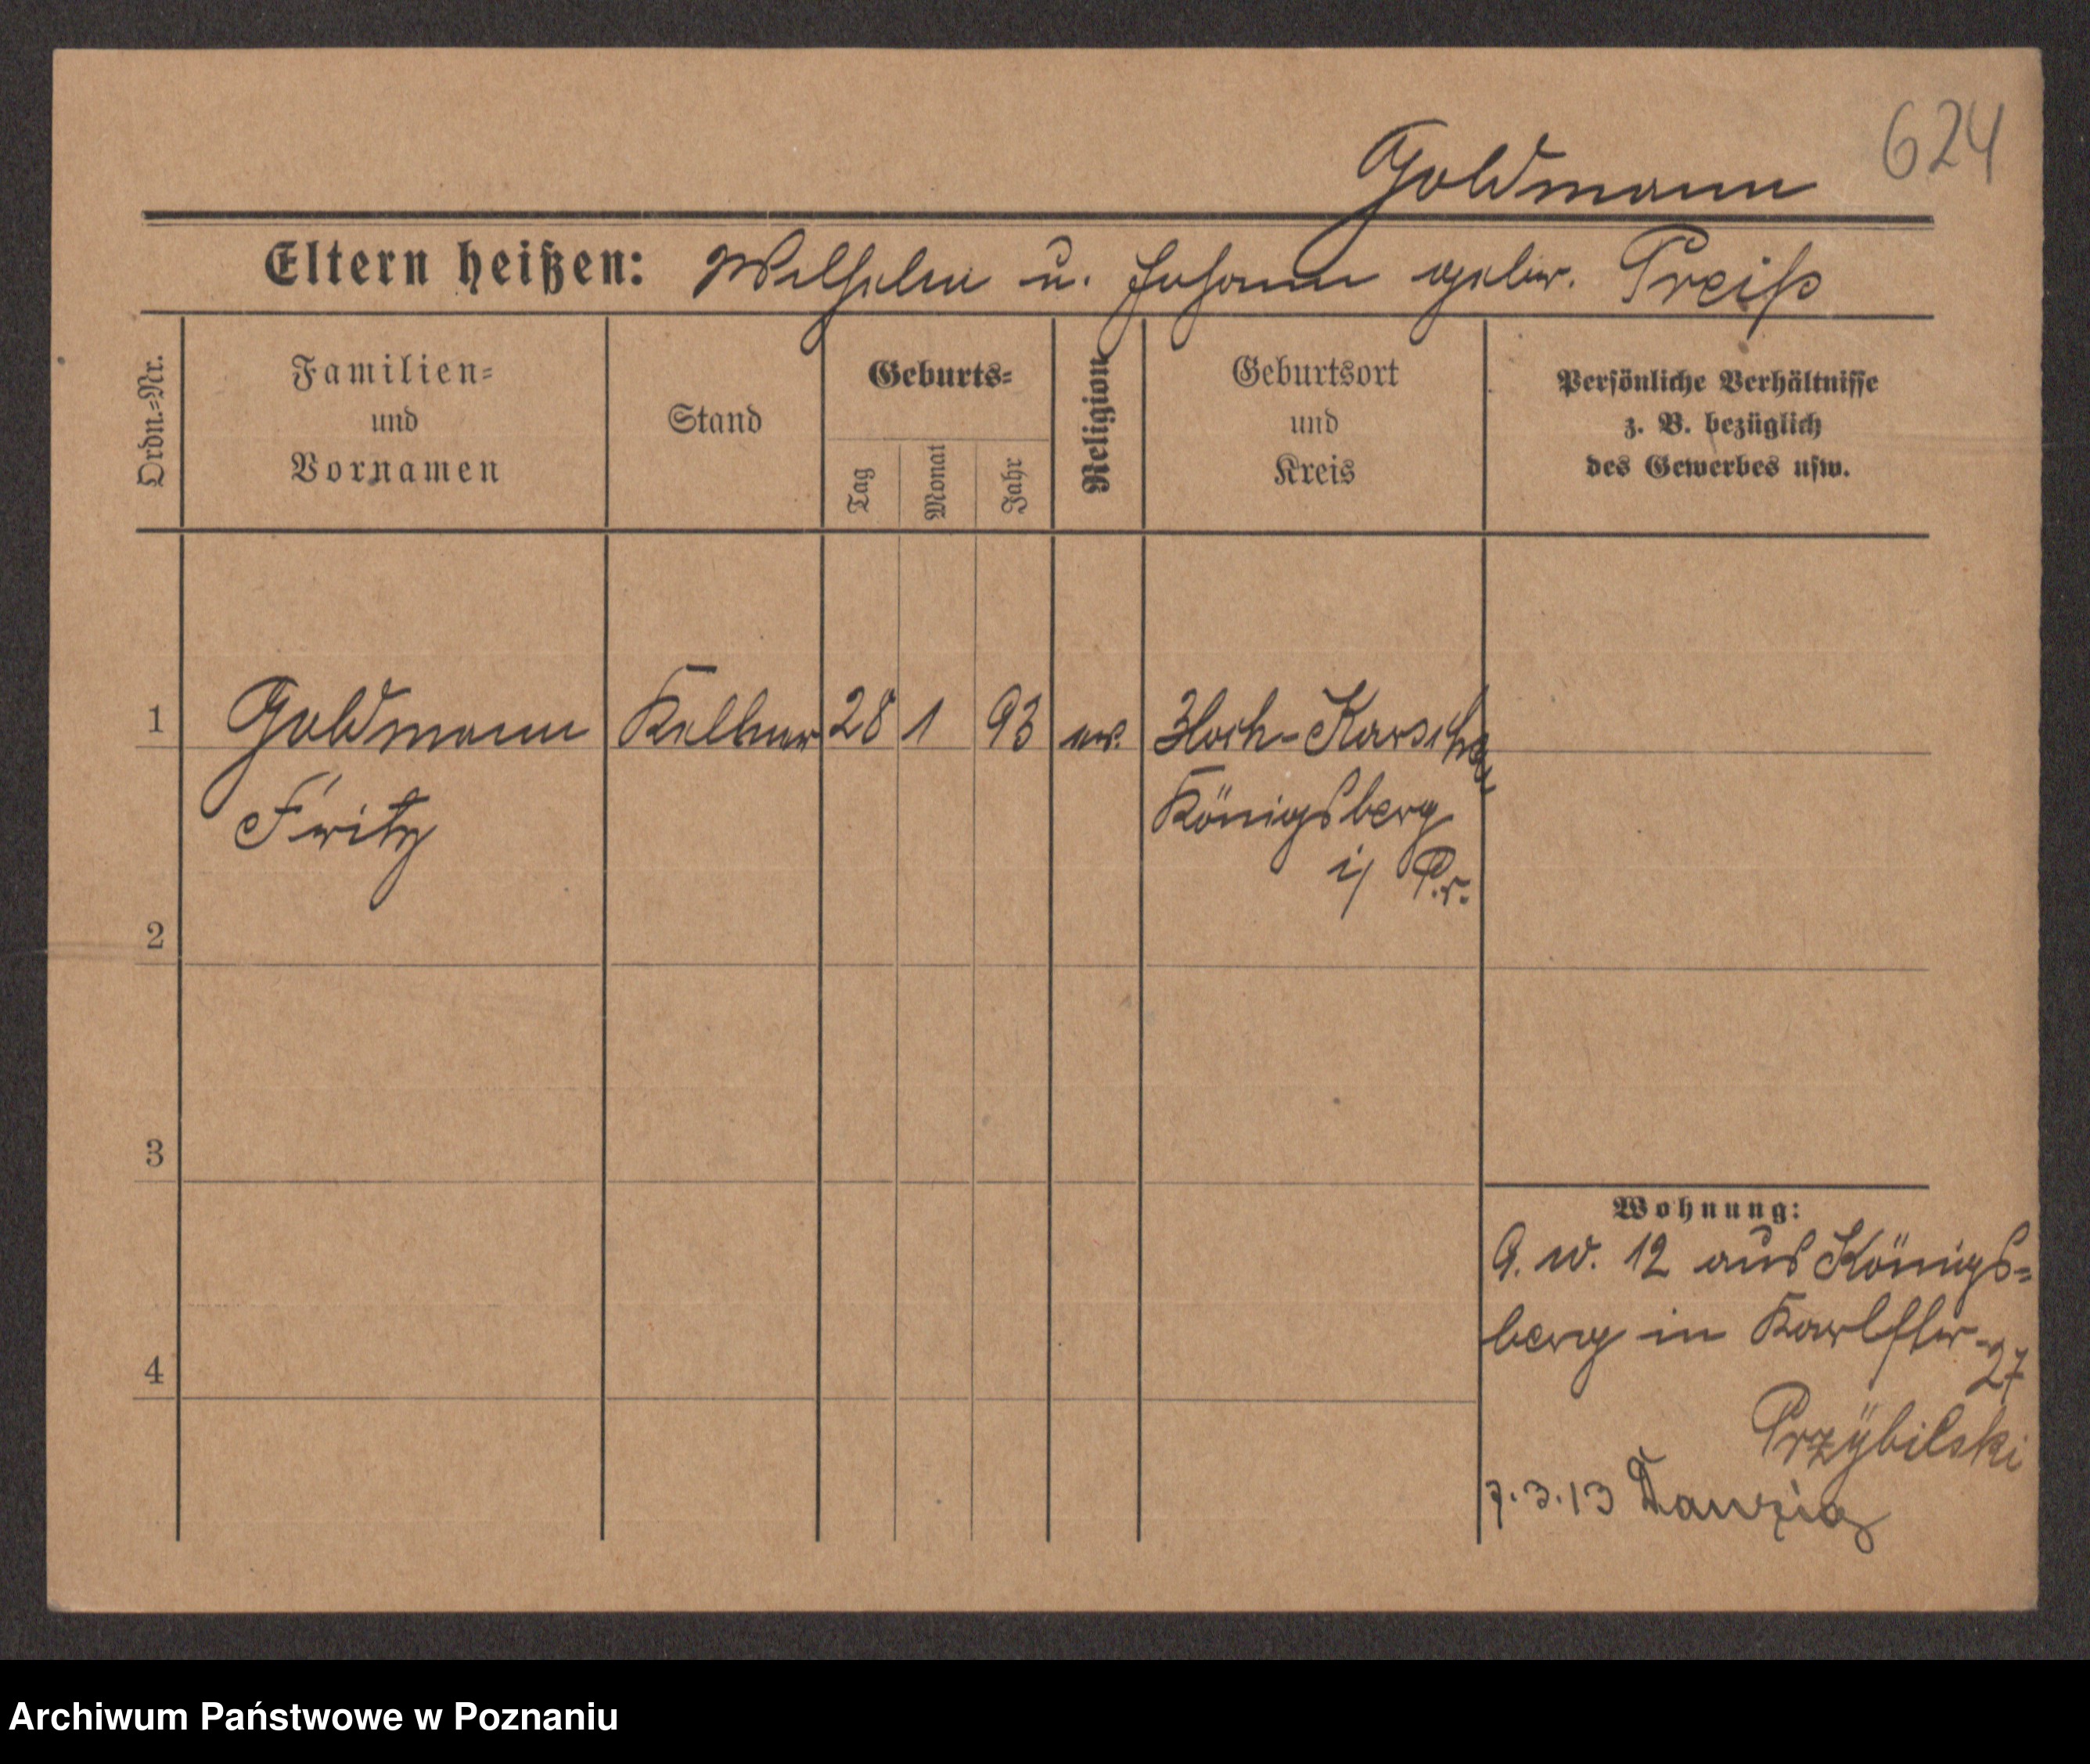 624
Goldmann
Eltern heißen: Wilhelm u. Johann gebor. Preiß
Ordn.=Nr.
Familien=
und
Vornamen
Stand
Geburts=
Tag
Monat
Jahr
Religion
Geburtsort
und
Kreis
Persönliche Verhältnisse
z. B. bezüglich
des Gewerbes usw.
1 Goldmann Kellner 28 1 93 ev. Hoch-Karschau
Fritz Königsberg
i/ Pr.
2
3
4
Wohnung:
9. IV. 12 aus Königs=
berg in Karlstr. 27
Przÿbilski
7.3.13 Danzig
Archiwum Państwowe w Poznaniu